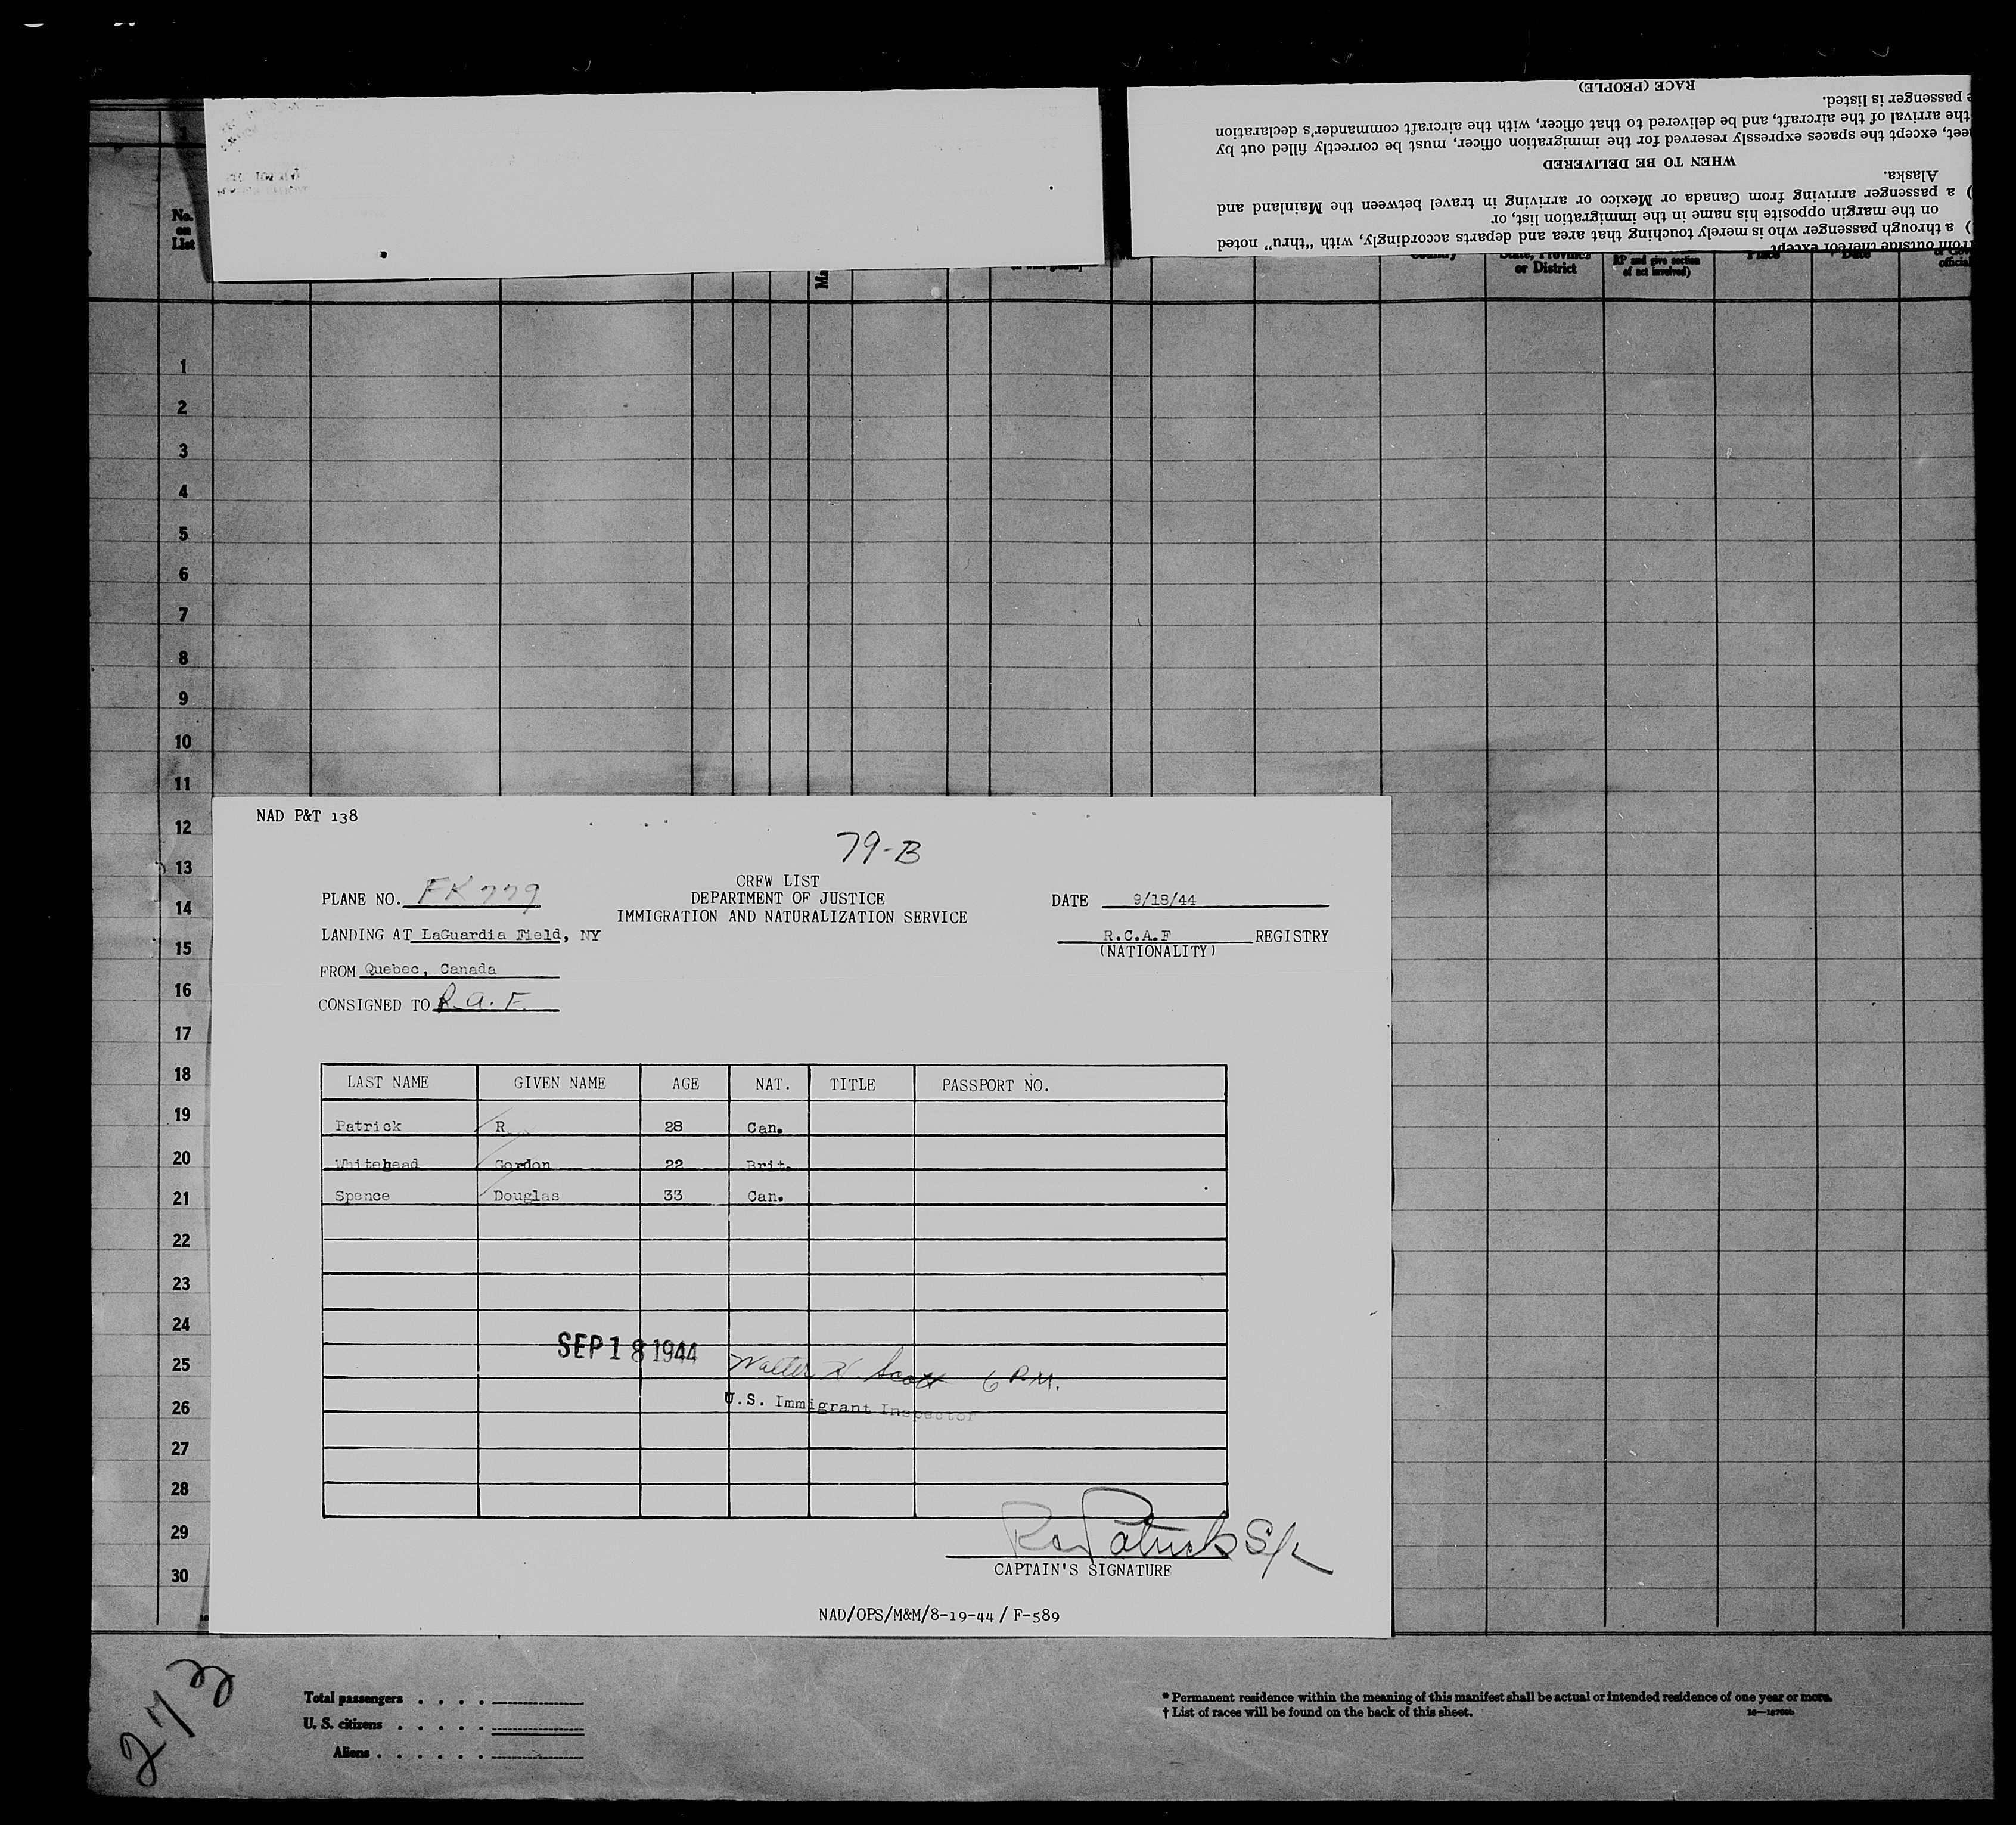 RACE (PEOPLE)
passenger is listed.
the arrival of the aircraft, and be delivered to that officer, with the aircraft commander's declaration
except the spaces expressly reserved for the immigration officer, must be correctly filled out by
WHEN TO BE DELIVERED
Alaska.
) a passenger arriving from Canada or Mexico or arriving in travel between the Mainland and
on the margin opposite his name in the immigration list, or
) a through passenger who is merely touching that area and departs accordingly, with "thru" noted
from outside thereof except
No.
on
List
Ma
Country
State, Province
or District
RP and give section
of act involved)
Place
Date
official
1
2
3
4
5
6
7
8
9
10
11
12
13
14
15
16
17
18
19
20
21
22
23
24
25
26
27
28
29
30
NAD P&T 138
79-B
CREW LIST
DEPARTMENT OF JUSTICE
IMMIGRATION AND NATURALIZATION SERVICE
PLANE NO. FK 779
DATE 9/18/44
LANDING AT LaGuardia Field, NY
R.C.A.F REGISTRY
(NATIONALITY)
FROM Quebec, Canada
CONSIGNED TO R.A.F.
LAST NAME GIVEN NAME AGE NAT. TITLE PASSPORT NO.
Patrick R 28 Can.
Whitehead Gordon 22 Brit.
Spence Douglas 33 Can.
SEP 18 1944
Walter H. Scott 6 P.M.
U.S. Immigrant Inspector
Patrick S/L
CAPTAIN'S SIGNATURE
NAD/OPS/M&M/8-19-44 / F-589
273
Total passengers . . . .
U. S. citizens . . . . .
Aliens . . . . . .
* Permanent residence within the meaning of this manifest shall be actual or intended residence of one year or more.
† List of races will be found on the back of this sheet.